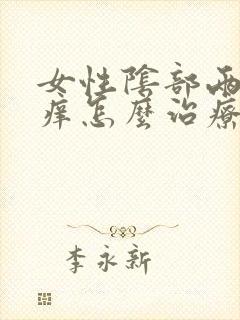 女性陰部兩
痒怎麼治療
李永新